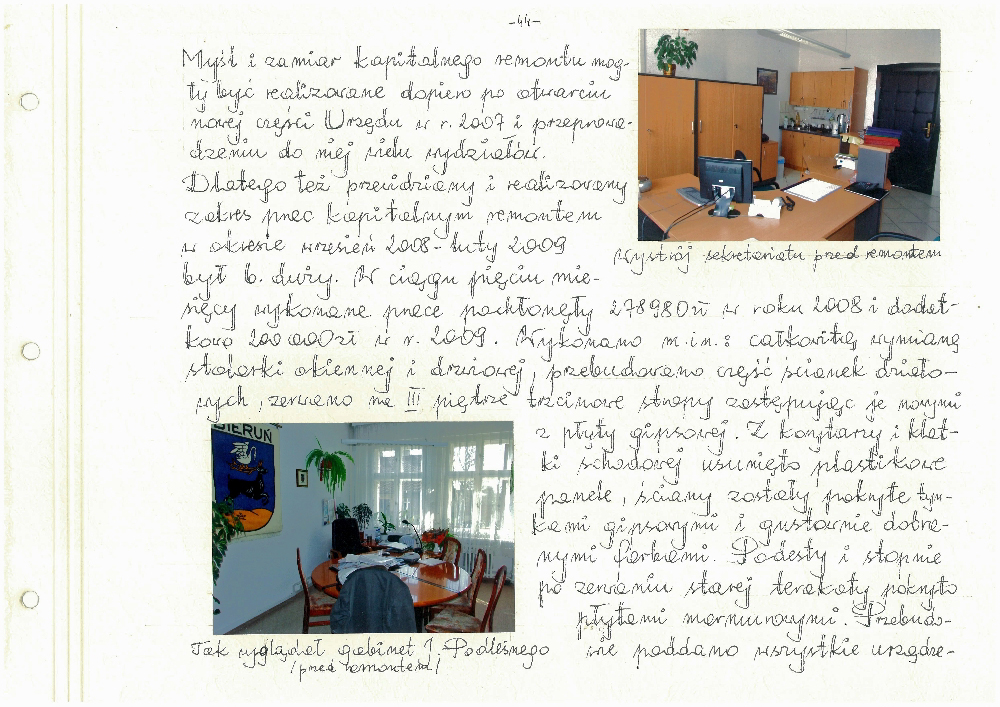 -44-
Myśl i zamiar kapitalnego remontu mog-
ły być realizowane dopiero po otwarciu
nowej części Urzędu w r. 2007 i przeprowa-
dzeniu do niej wielu wydziałów.
Dlatego też przewidziany i realizowany
zakres prac kapitalnym remontem
w okresie wrzesień 2008 - luty 2009
był b. duży. W ciągu pięciu mie-
sięcy wykonane prace pochłonęły 278980 zł w roku 2008 i dodat-
kowo 200 000 zł w r. 2009. Wykonano m.in.: całkowitą wymianę
stolarki okiennej i drzwiowej, przebudowano część ścianek działo-
wych, zerwano na III piętrze trzcinowe stropy zastępując je nowymi
z płyty gipsowej. Z korytarzy i klat-
ki schodowej usunięto plastikowe
panele, ściany zostały pokryte tyn-
kami gipsowymi i gustownie dobra-
nymi farbami. Podesty i stopnie
po zerwaniu starej terakoty pokryto
płytami marmurowymi. Przebudo-
wie poddano wszystkie urządze-
Wystrój sekretariatu przed remontem
BIERUŃ
Tak wyglądał gabinet J. Podleśnego
/przed remontem/